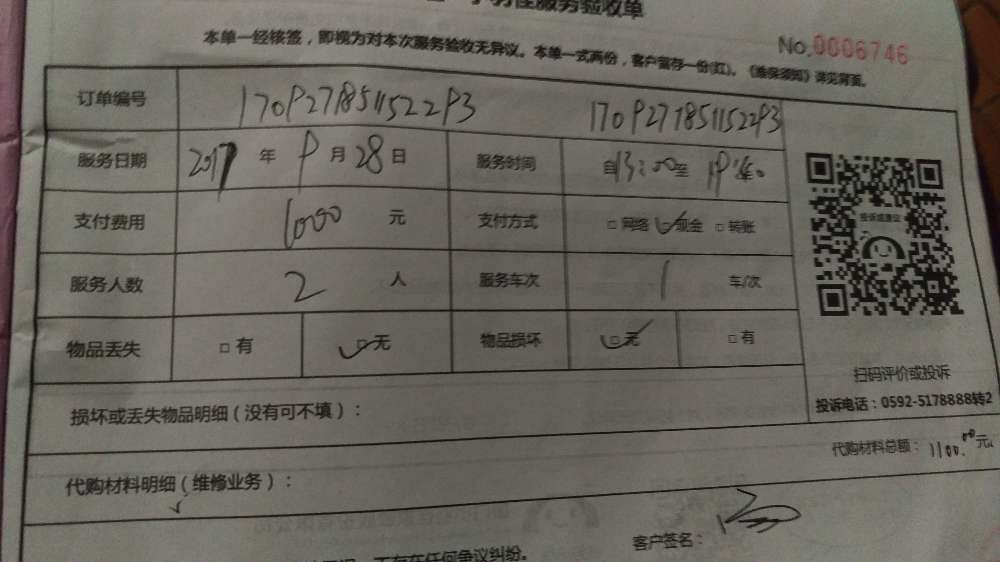 服务验收单
本单一经核签，即视为对本次服务验收无异议。本单一式两份，客户留存一份(红)。《维保须知》详见背面。
No.0006746
订单编号 1709271851152293 1709271851152293
服务日期 2017 年 9 月 28 日 服务时间 自13:00至
支付费用 1000 元 支付方式 □网络 ☑现金 □转账
投诉或建议
服务人数 2 人 服务车次 1 车/次
物品丢失 □有 ☑无 物品损坏 ☑无 □有
扫码评价或投诉
投诉电话：0592-5178888转2
损坏或丢失物品明细（没有可不填）：
代购材料总额：1100.00元
代购材料明细（维修业务）：
客户签名：
不存在任何争议纠纷。